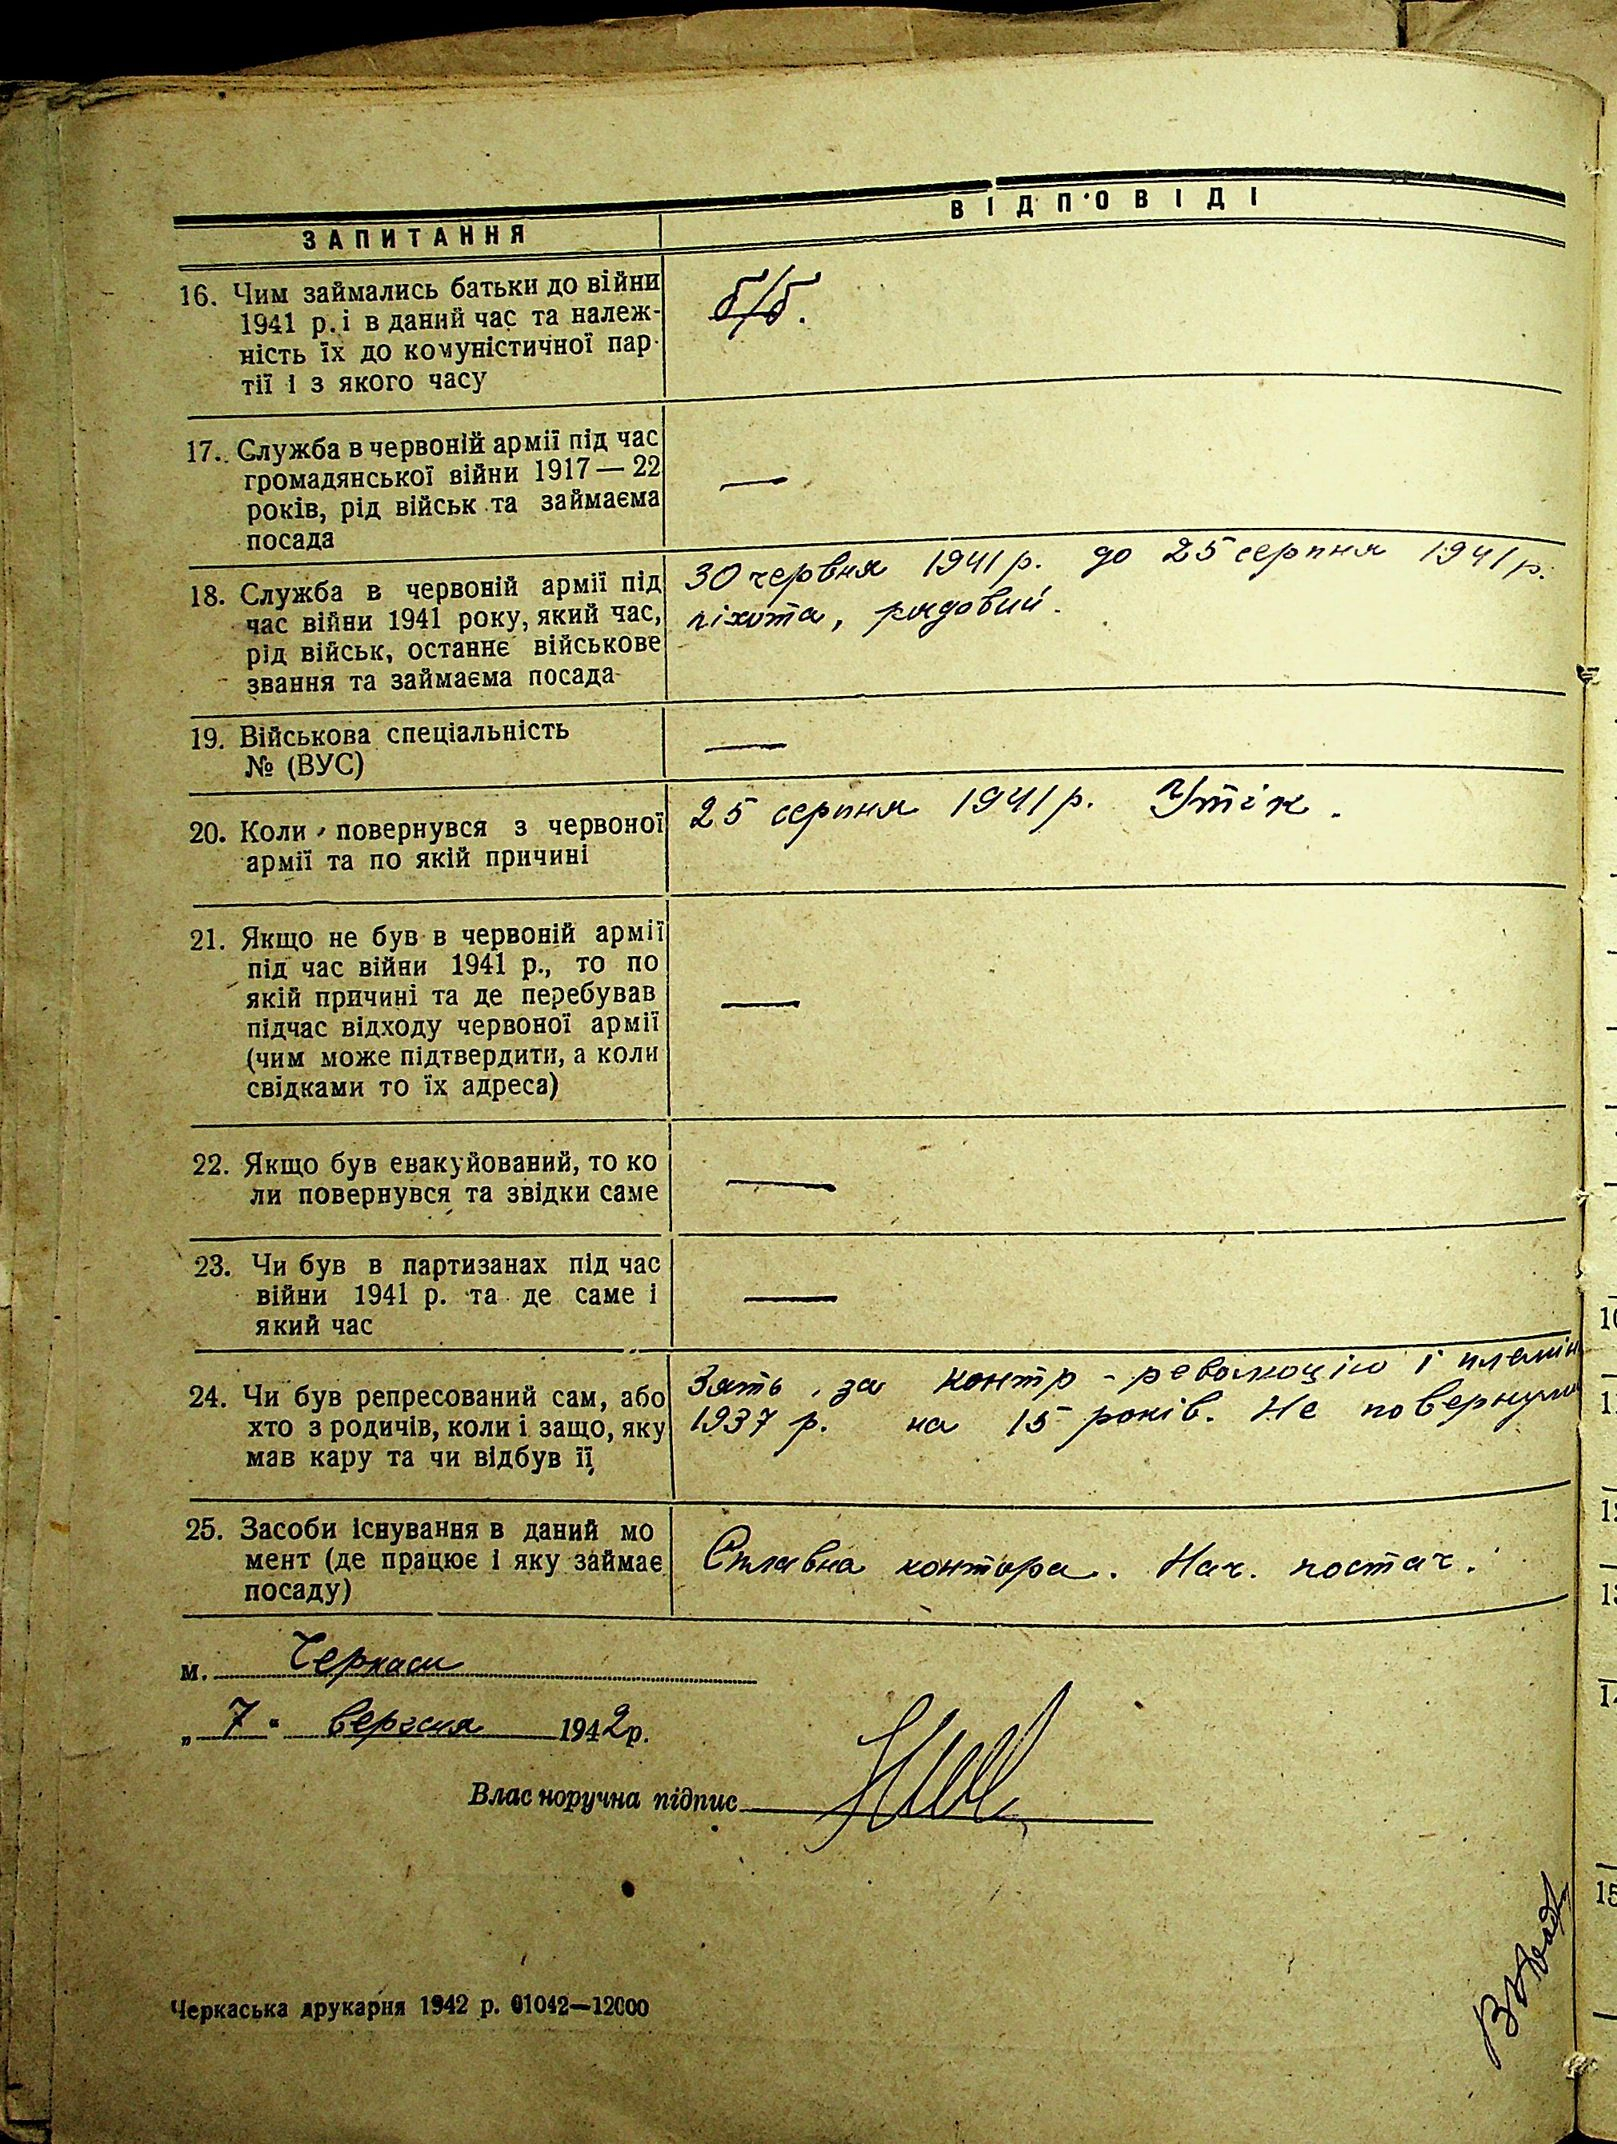 ЗАПИТАННЯ
ВІДПОВІДІ
16. Чим займались батьки до війни
1941 р. і в даний час та належ-
ність їх до комуністичної пар-
тії і з якого часу
б/б.
17. Служба в червоній армії під час
громадянської війни 1917—22
років, рід військ та займаєма
посада
—
18. Служба в червоній армії під
час війни 1941 року, який час,
рід військ, останнє військове
звання та займаєма посада
30 червня 1941 р. до 25 серпня 1941 р.
піхота, рядовий.
19. Військова спеціальність
№ (ВУС)
—
20. Коли повернувся з червоної
армії та по якій причині
25 серпня 1941 р. Утік.
21. Якщо не був в червоній армії
під час війни 1941 р., то по
якій причині та де перебував
підчас відходу червоної армії
(чим може підтвердити, а коли
свідками то їх адреса)
—
22. Якщо був евакуйований, то ко
ли повернувся та звідки саме
—
23. Чи був в партизанах під час
війни 1941 р. та де саме і
який час
—
24. Чи був репресований сам, або
хто з родичів, коли і защо, яку
мав кару та чи відбув її
Зять, за контр-революцію і племін
1937 р. на 15 років. Не повернули
25. Засоби існування в даний мо
мент (де працює і яку займає
посаду)
Сплавна контора. Нач. постач.
м. Черкаси
„7“ вересня 1942 р.
Власноручна підпис
Черкаська друкарня 1942 р. 01042—12000